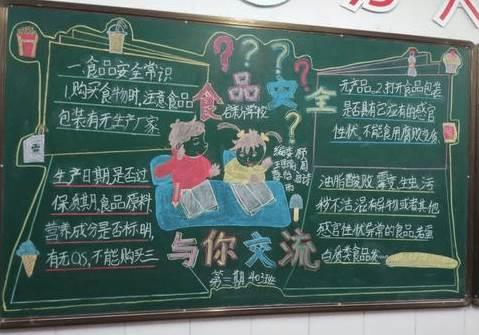 一.食品安全常识
1购买食物时,注意食品
包装有无生产厂家
生产日期是否过
保质期,食品原料
营养成分是否标明,
有无QS,不能购买三
食品安全
与你交流
第三期 403班
无产品。2.打开食品包装
是否具它应有的感官
性状,不能食用腐败变质
油脂酸败 霉变、生虫、污
秽不洁.混有异物或者其他
感官性状异常的食品,若蛋
白质类食品发